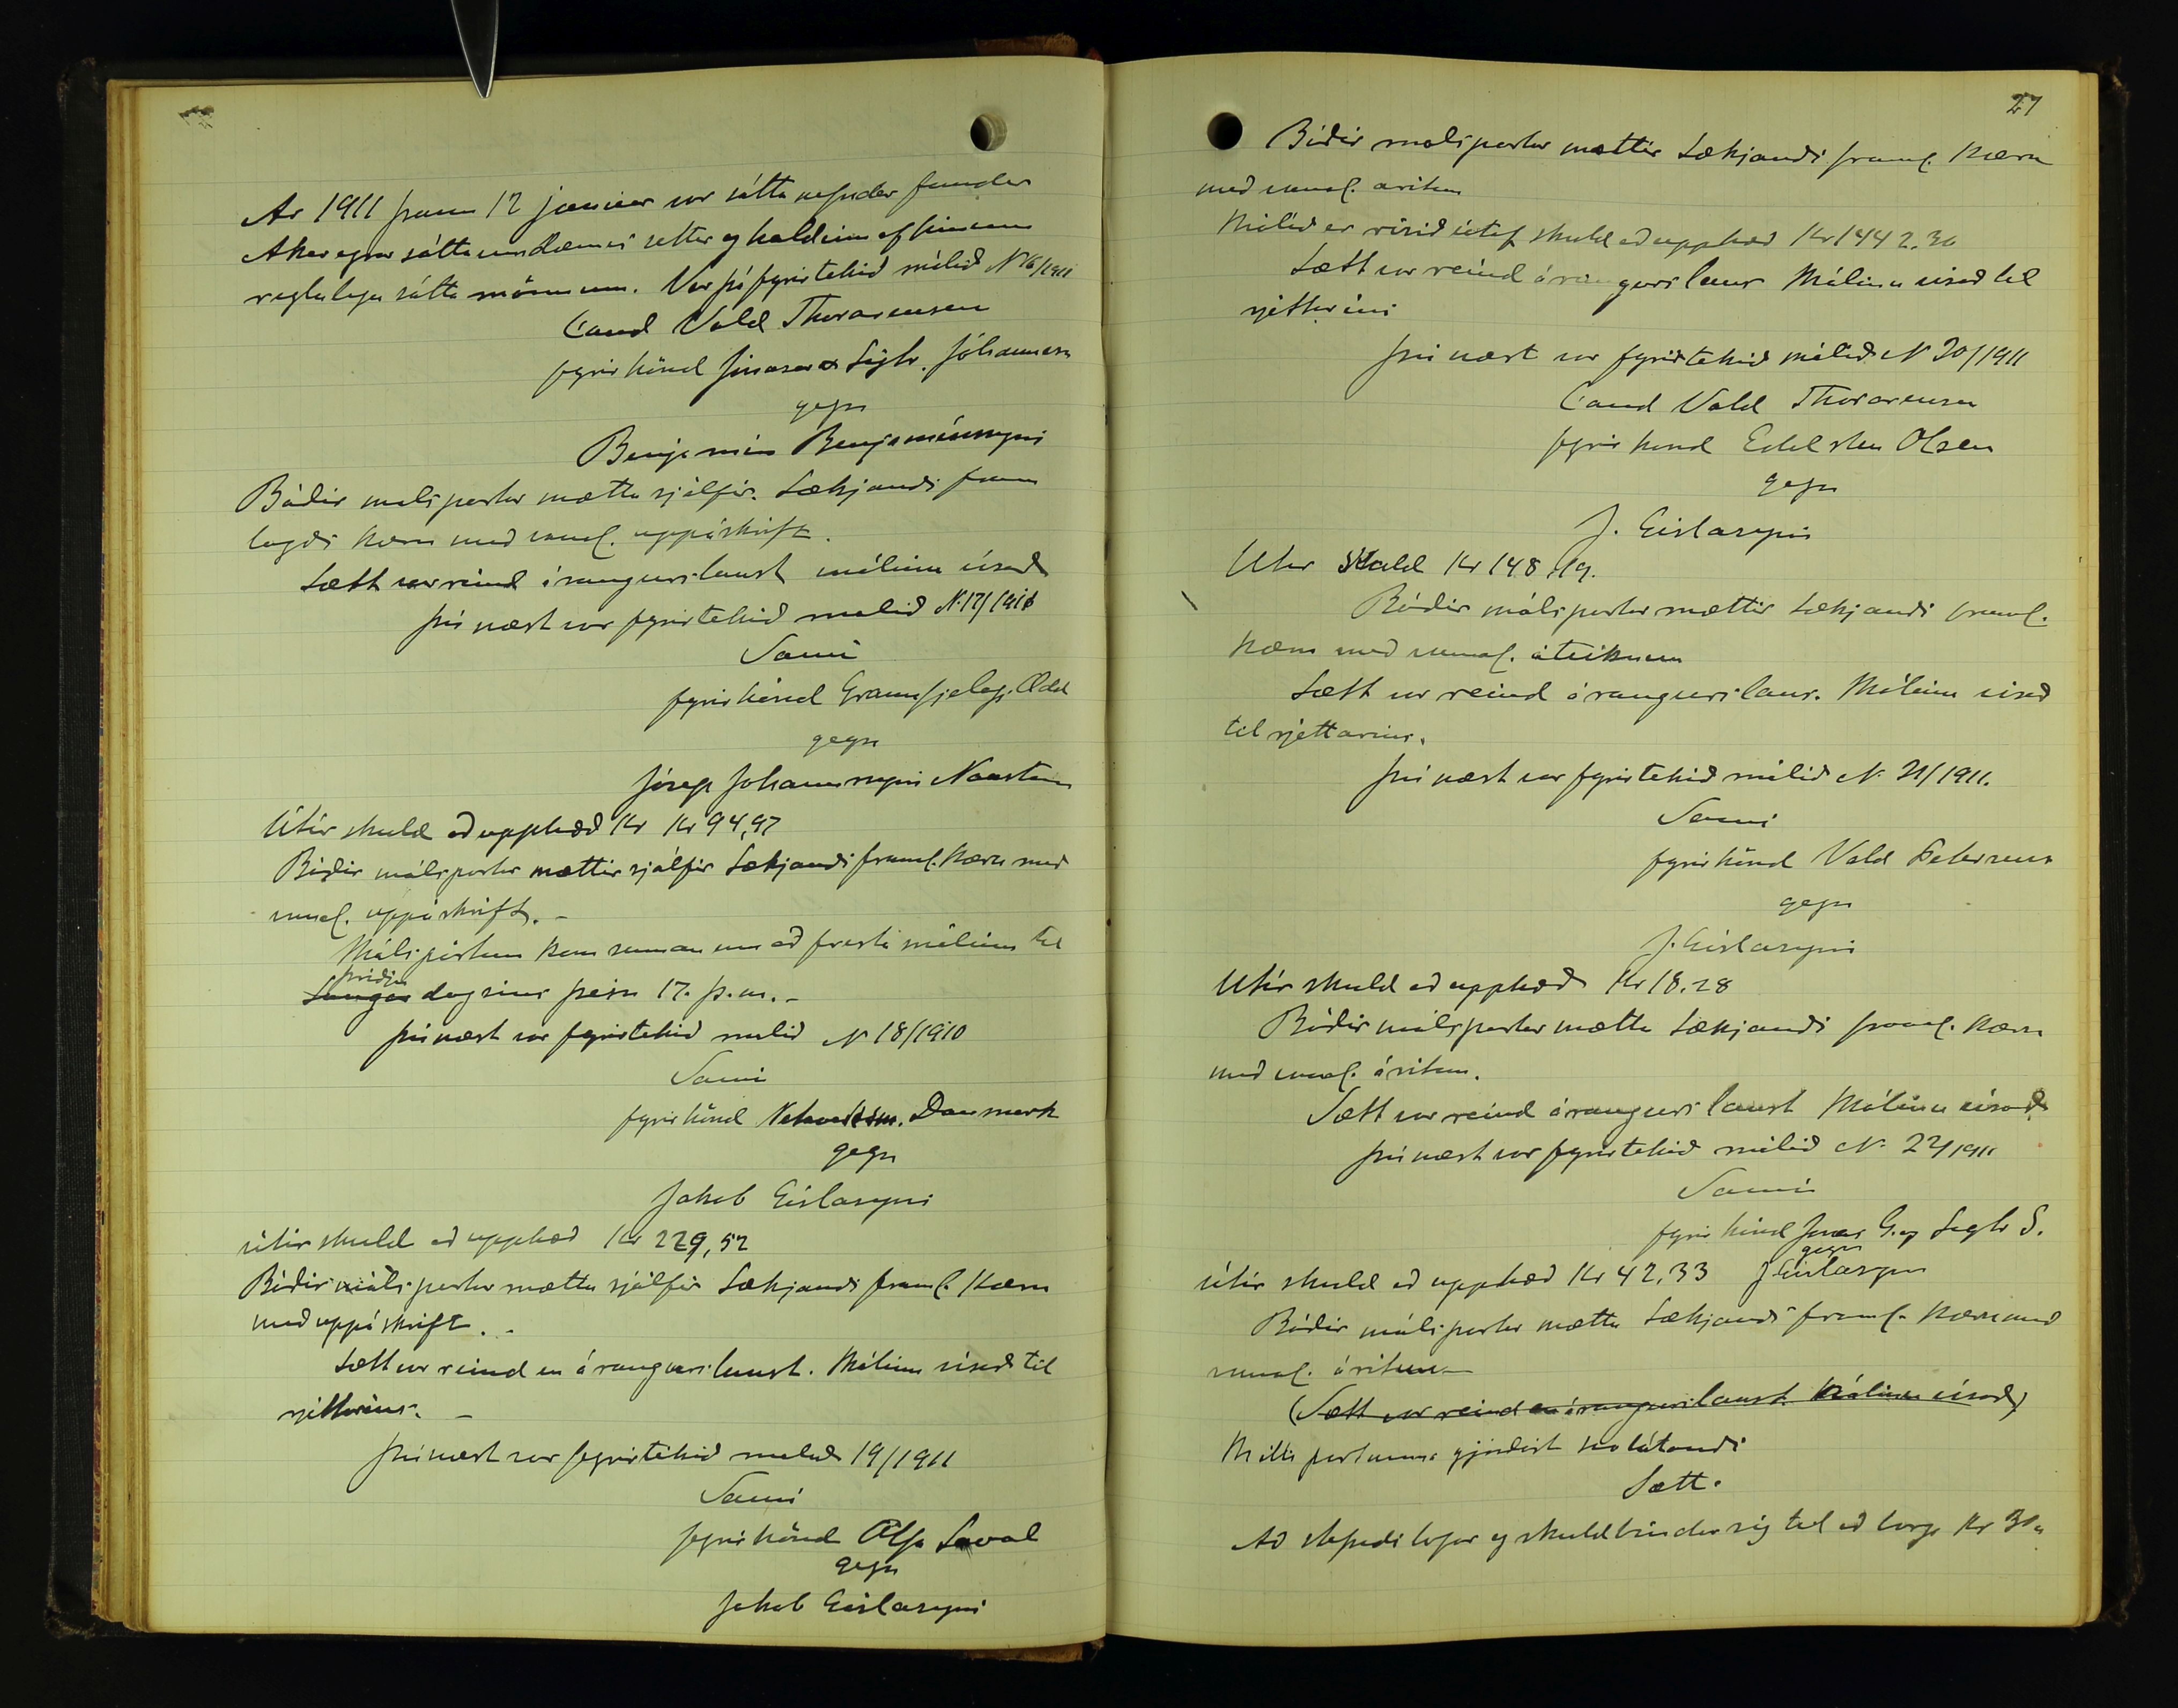 Ar 1911 þann 12 janúar var sátta nefndar fundur
Akureyrar sáttaumdæmis settur og haldinn af hinum
reglulegu sátta mönnum. Var þá fyrirtekið málið N 16/1911
Cand Vald Thorarensen
fyrir hönd Jónasar & Sigtr. Jóhannesson
gegn
Benjamín Benjamínssyni
Báðir málspartar mættu sjálfir. Sækjandi fram
lagði kæru með venel. uppáskrift.
Sætt var reind árangurslaust málinu vísað
Því næst var fyrirtekið malið N. 17/1911
Sami
fyrir hönd Gránufjelags. Odd
gegn
Jósep Jóhannssyni Naustum
Útúr skuld að upphæð Kr Kr 94,97
Báðir málspartar mættir sjálfir Sækjandi framl. kæru með
venel. uppáskrift. -
Málspörtum kom saman um að fresta málinu til
þriðju
Laugar dagsins þess 17. þ.m. -
Því næst var fyrirtekið malið N 18/1910
Sami
fyrir hönd Danmark
gegn
Jakob Gíslasyni
útúr skuld að upphæð Kr 229,52
Báðir málspartar mættu sjálfir Sækjandi framl. kæru
með uppáskrift. -
Sætt var reind en árangurslaust. Málinu vísað til
rjettarins. -
Því næst var fyrirtekið malið 19/1911
Sami
fyrir hönd Alfa Laval
gegn
Jakob Gíslasyni
27
Báðir málspartar mættir Sækjandi framl. kæru
með venel. aritun
Málið er risið útaf skuld að upphæð Kr 1442.30
Sætt var reind árangurslaus Málinu vísað til
rjettarins
Því næst var fyrirtekið málið N 20/1911
Cand Vald Thorarensen
fyrir hönd Edelsten Olsen
gegn
J. Gíslasyni
Utur skuld Kr 148,19.
Báðir málspartar mættir Sækjandi framl.
kæru með venel. áteiknun
Sætt var reind árangurslaus. Málinu vísað
til rjettarins.
Því næst var fyrirtekið málið N. 21/1911.
Sami
fyrir hönd Vald Petersens
gegn
J. Gíslasyni
Utúr skuld að upphæð Kr 18.28
Báðir málspartar mættu Sækjandi framl. kæru
með venel. áritun.
Sætt var reind árangurslaust Málinu vísað
Því næst var fyrirtekið málið N. 22/1911
Sami
fyrir hönd Jónas G. og Sigtr S.
gegn
Útúr skuld að upphæð Kr 42.33 J Gíslasyni
Báðir málspartar mættu Sækjandi framl. kæru með
venel. áritun
(Sætt var reind en árangurslaust. Málinu vísað)
Milli partanna gjörðist svolátandi
Sætt.
Að stefndi lofar og skuldbindur sig til að borga Kr 30,